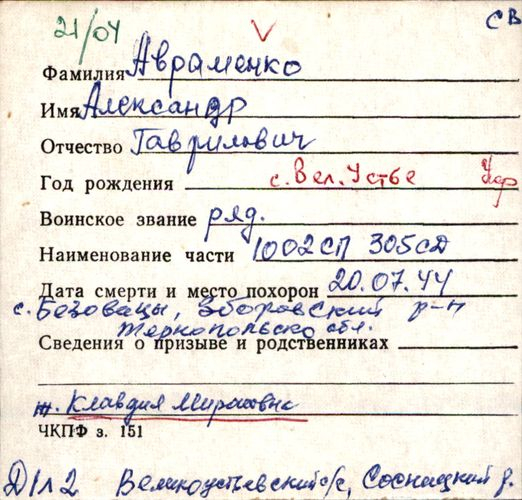 21/04 СВ
Фамилия Авраменко
Имя Александр
Отчество Гаврилович
Год рождения с. Вел. Устье Укр
Воинское звание ряд.
Наименование части 1002СП 305СД
Дата смерти и место похорон 20.07.44
с. Беховацы, Зборовский р-н
Тернопольско обл.
Сведения о призыве и родственниках
ж. Клавдия
ЧКПФ з. 151
Д1л2 Великоустьевский с/с, Сосницкий р.